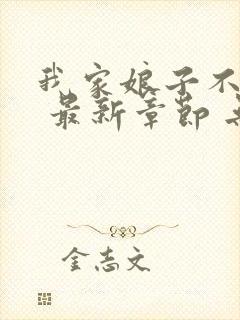 我家娘子不
最新章节
金志文